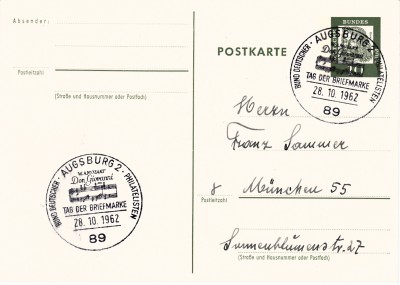 Absender:
Postleitzahl
(Straße und Hausnummer oder Postfach)
BUND DEUTSCHER · AUGSBURG 2 · PHILATELISTEN
W. A. MOZART
Don Giovanni
TAG DER BRIEFMARKE
28. 10. 1962
89
POSTKARTE
BUNDES
10
BUND DEUTSCHER · AUGSBURG 2 · PHILATELISTEN
Don Giovanni
TAG DER BRIEFMARKE
28. 10. 1962
89
Herrn
Franz Sammer
8 München 55
Postleitzahl
Sonnenblumenstr. 27
(Straße und Hausnummer oder Postfach)